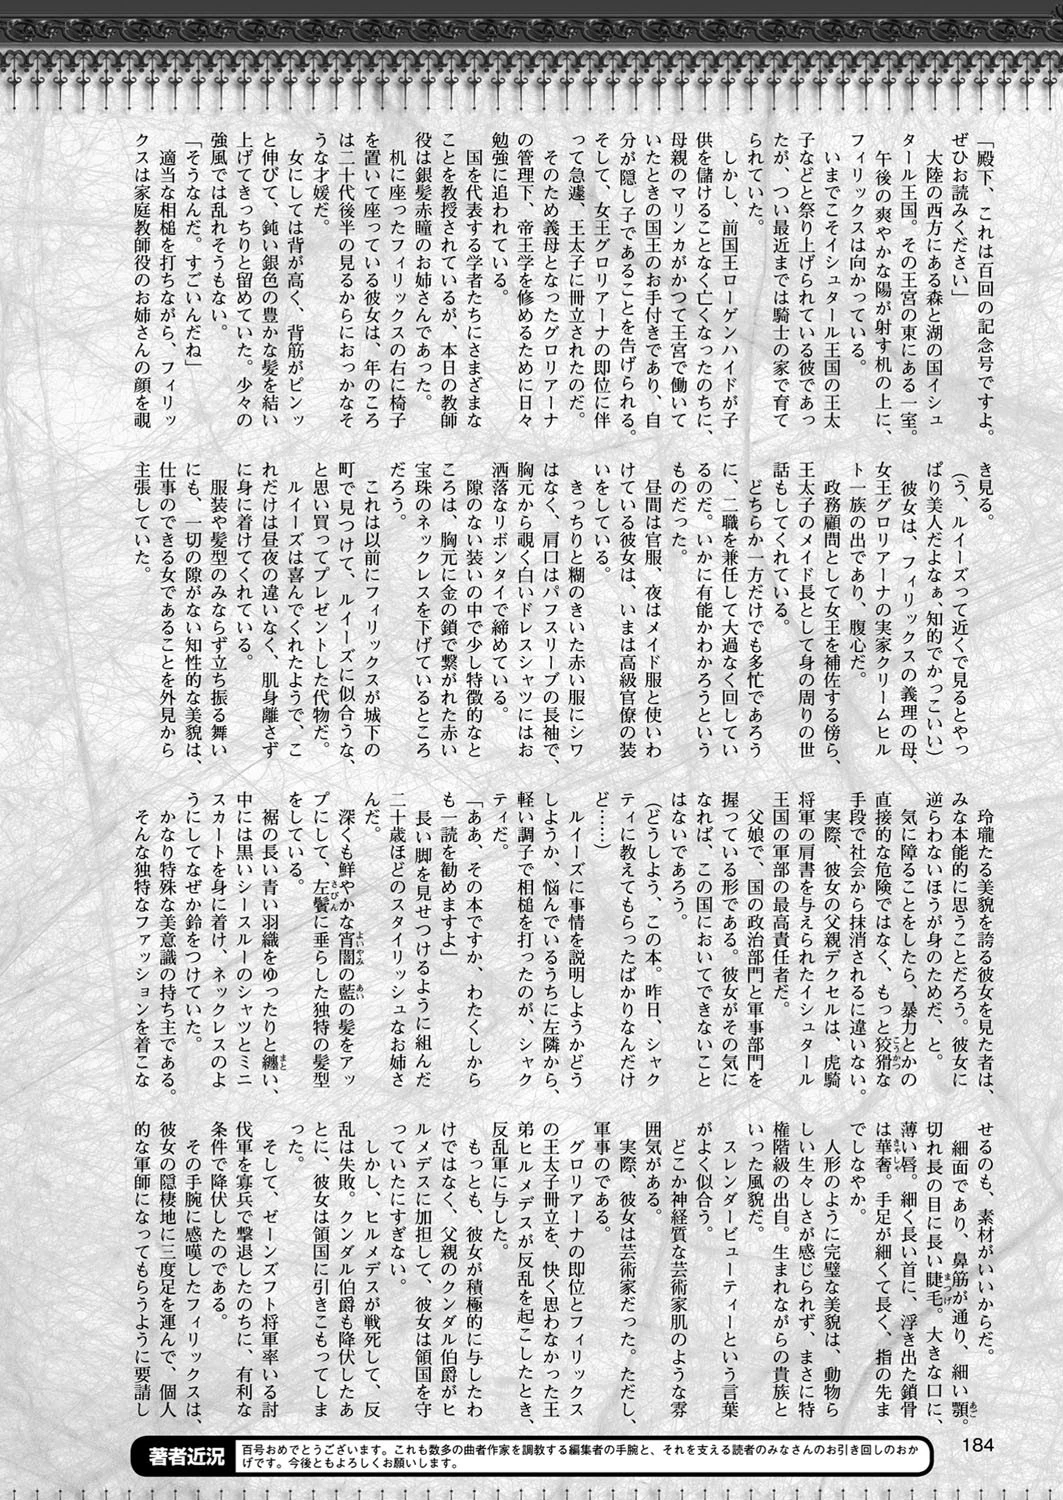 「殿下、これは百回の記念号ですよ。
ぜひお読みください」
　大陸の西方にある森と湖の国イシュ
タール王国。その王宮の東にある一室。
　午後の爽やかな陽が射す机の上に、
フィリックスは向かっている。
　いまでこそイシュタール王国の王太
子などと祭り上げられている彼であっ
たが、つい最近までは騎士の家で育て
られていた。
　しかし、前国王ローゲンハイドが子
供を儲けることなく亡くなったのちに、
母親のマリンカがかつて王宮で働いて
いたときの国王のお手付きであり、自
分が隠し子であることを告げられる。
そして、女王グロリアーナの即位に伴
って急遽、王太子に冊立されたのだ。
　そのため義母となったグロリアーナ
の管理下、帝王学を修めるために日々
勉強に追われている。
　国を代表する学者たちにさまざまな
ことを教授されているが、本日の教師
役は銀髪赤瞳のお姉さんであった。
　机に座ったフィリックスの右に椅子
を置いて座っている彼女は、年のころ
は二十代後半の見るからにおっかなそ
うな才媛だ。
　女にしては背が高く、背筋がピンッ
と伸びて、鈍い銀色の豊かな髪を結い
上げてきっちりと留めていた。少々の
強風では乱れそうもない。
「そうなんだ。すごいんだね」
　適当な相槌を打ちながら、フィリッ
クスは家庭教師役のお姉さんの顔を覗
き見る。
（う、ルイーズって近くで見るとやっ
ぱり美人だよなぁ、知的でかっこいい）
　彼女は、フィリックスの義理の母、
女王グロリアーナの実家クリームヒル
ト一族の出であり、腹心だ。
　政務顧問として女王を補佐する傍ら、
王太子のメイド長として身の周りの世
話もしてくれている。
　どちらか一方だけでも多忙であろう
に、二職を兼任して大過なく回してい
るのだ。いかに有能かわかろうという
ものだった。
　昼間は官服、夜はメイド服と使いわ
けている彼女は、いまは高級官僚の装
いをしている。
　きっちりと糊のきいた赤い服にシワ
はなく、肩口はパフスリーブの長袖で、
胸元から覗く白いドレスシャツにはお
洒落なリボンタイで締めている。
　隙のない装いの中で少し特徴的なと
ころは、胸元に金の鎖で繋がれた赤い
宝珠のネックレスを下げているところ
だろう。
　これは以前にフィリックスが城下の
町で見つけて、ルイーズに似合うな、
と思い買ってプレゼントした代物だ。
　ルイーズは喜んでくれたようで、こ
れだけは昼夜の違いなく、肌身離さず
に身に着けてくれている。
　服装や髪型のみならず立ち振る舞い
にも、一切の隙がない知性的な美貌は、
仕事のできる女であることを外見から
主張していた。
　玲瓏たる美貌を誇る彼女を見た者は、
みな本能的に思うことだろう。彼女に
逆らわないほうが身のためだ、と。
　気に障ることをしたら、暴力とかの
直接的な危険ではなく、もっと狡猾な
手段で社会から抹消されるに違いない。
　実際、彼女の父親デクセルは、虎騎
将軍の肩書を与えられたイシュタール
王国の軍部の最高責任者だ。
　父娘で、国の政治部門と軍事部門を
握っている形である。彼女がその気に
なれば、この国においてできないこと
はないであろう。
（どうしよう、この本。昨日、シャク
ティに教えてもらったばかりなんだけ
ど……）
　ルイーズに事情を説明しようかどう
しようか、悩んでいるうちに左隣から、
軽い調子で相槌を打ったのが、シャク
ティだ。
「ああ、その本ですか、わたくしから
も一読を勧めますよ」
　長い脚を見せつけるように組んだ
二十歳ほどのスタイリッシュなお姉さ
んだ。
　深くも鮮やかな宵闇の藍の髪をアッ
プにして、左鬢に垂らした独特の髪型
をしている。
　裾の長い青い羽織をゆったりと纏い、
中には黒いシースルーのシャツとミニ
スカートを身に着け、ネックレスのよ
うにしてなぜか鈴をつけていた。
　かなり特殊な美意識の持ち主である。
　そんな独特なファッションを着こな
せるのも、素材がいいからだ。
　細面であり、鼻筋が通り、細い顎。
切れ長の目に長い睫毛。大きな口に、
薄い唇。細く長い首に、浮き出た鎖骨
は華奢。手足が細くて長く、指の先ま
でしなやか。
　人形のように完璧な美貌は、動物ら
しい生々しさが感じられず、まさに特
権階級の出自。生まれながらの貴族と
いった風貌だ。
　スレンダービューティーという言葉
がよく似合う。
　どこか神経質な芸術家肌のような雰
囲気がある。
　実際、彼女は芸術家だった。ただし、
軍事のである。
　グロリアーナの即位とフィリックス
の王太子冊立を、快く思わなかった王
弟ヒルメデスが反乱を起こしたとき、
反乱軍に与した。
　もっとも、彼女が積極的に与したわ
けではなく、父親のクンダル伯爵がヒ
ルメデスに加担して、彼女は領国を守
っていたにすぎない。
　しかし、ヒルメデスが戦死して、反
乱は失敗。クンダル伯爵も降伏したあ
とに、彼女は領国に引きこもってしま
った。
　そして、ゼーンズフト将軍率いる討
伐軍を寡兵で撃退したのちに、有利な
条件で降伏したのである。
　その手腕に感嘆したフィリックスは、
彼女の隠棲地に三度足を運んで、個人
的な軍師になってもらうように要請し
こうかつ
よいやみ
あい
さびん
まと
あご
まつげ
きゃしゃ
184
著者近況
百号おめでとうございます。これも数多の曲者作家を調教する編集者の手腕と、それを支える読者のみなさんのお引き回しのおか
げです。今後ともよろしくお願いします。